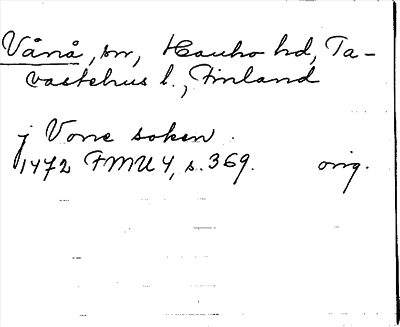 Vånå, sn, Hauho hd, Ta-
vastehus l., Finland
j Vone soken.
1472 FMU 4, s. 369. orig.